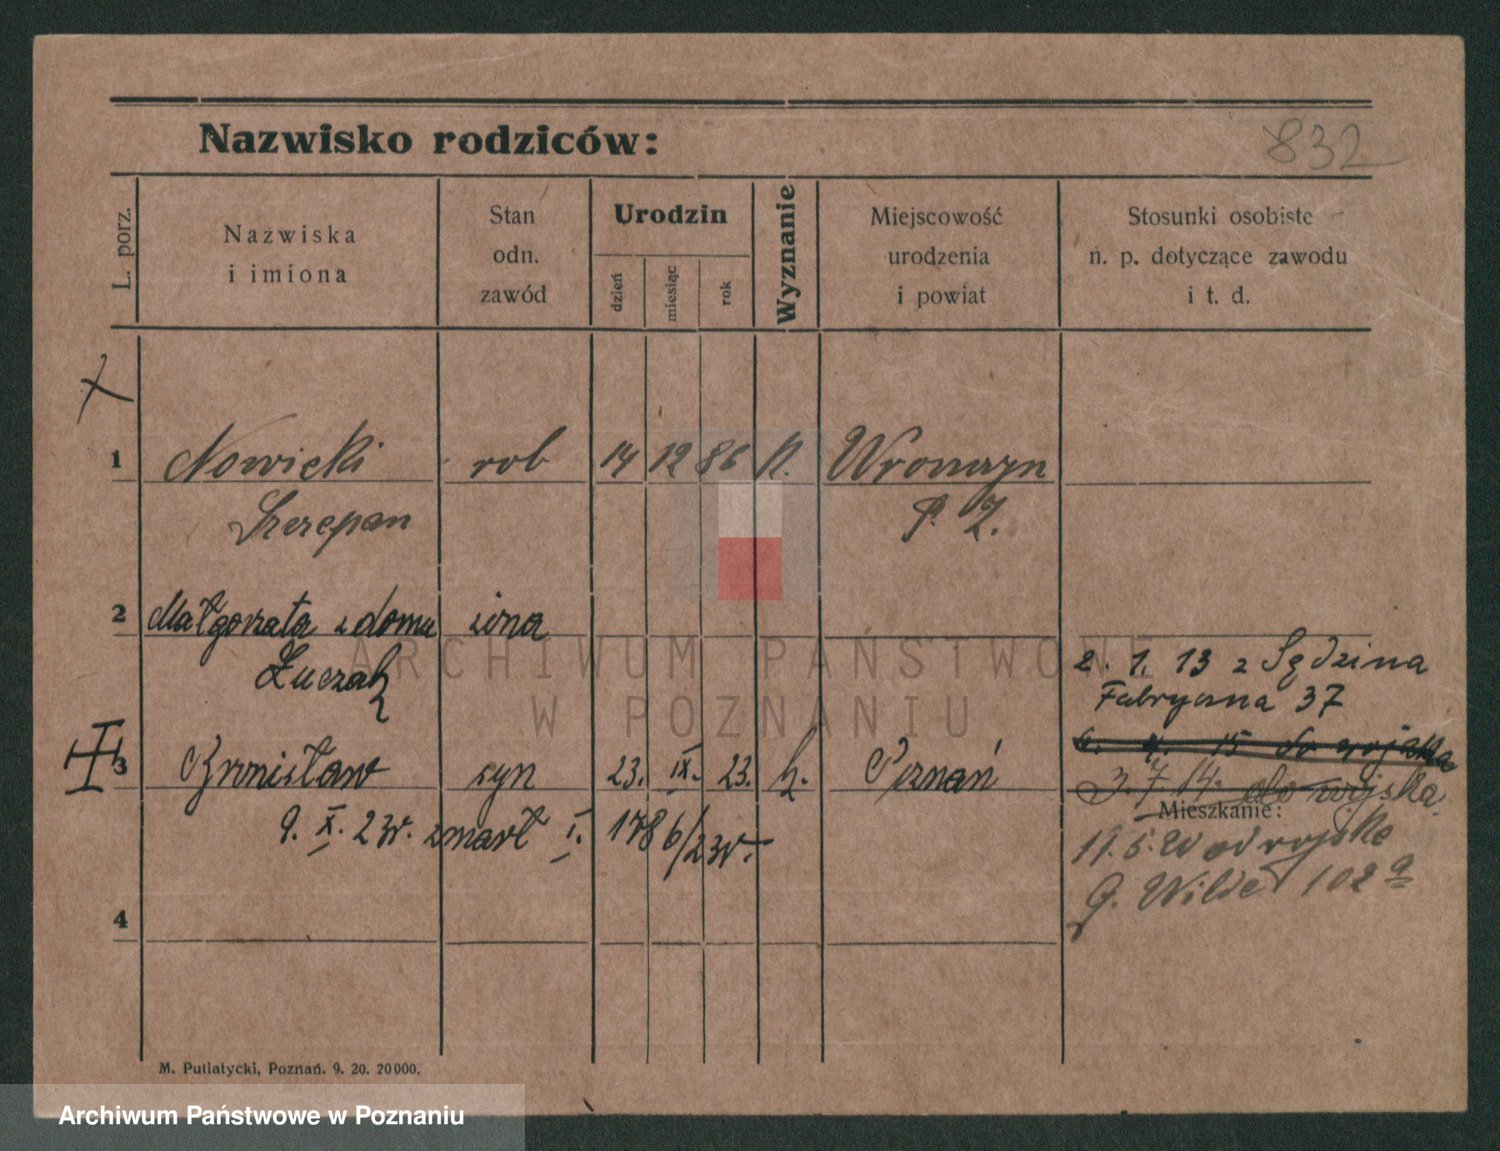 Nazwisko rodziców:
832
L. porz.
Nazwiska
i imiona
Stan
odn.
zawód
Urodzin
dzień
miesiąc
rok
Wyznanie
Miejscowość
urodzenia
i powiat
Stosunki osobiste
n. p. dotyczące zawodu
i t. d.
1 Nowicki rob 14 12 86 k. Wronczyn
Szczepan P. Z.
2 Małgorzata z domu żona
Łuczak
2. 1. 13 z Sędzina
Fabryczna 37
6. 4. 15 do wojska
3 Bronisław syn 23. IX. 23. k. Poznań
3. 7 14. do wojska
Mieszkanie:
9. X. 23r. zmarł I. 1786/23r.
11. 5. 20 od wojska
G. Wilda 102a
4
M. Putiatycki, Poznań. 9. 20. 20000.
ARCHIWUM PAŃSTWOWE
W POZNANIU
Archiwum Państwowe w Poznaniu